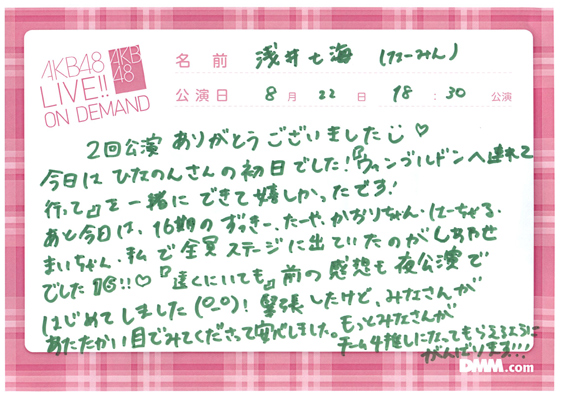 AKB48
LIVE!!
ON DEMAND
AKB
48
名前 浅井七海 (なーみん)
公演日 8月 22日 18:30 公演
2回公演 ありがとうございました♡
今日は ひなのんさんの初日でした!『ウィンブルドンへ連れて
行って』を一緒に できて嬉しかったです!
あと今日は、16期の ずっきー、たーや、かおりちゃん・はーちゃる・
まいちゃん・私 で 全員 ステージに 出ていたのが しあわせ
でした 16!!♡ 『遠くにいても』前の 感想も 夜公演で
はじめてしました (o_o)! 緊張したけど、みなさんが
あたたかい目でみてくださって安心しました。もっとみなさんが
チーム4推しになってもらえるように
がんばります!!!
DMM.com